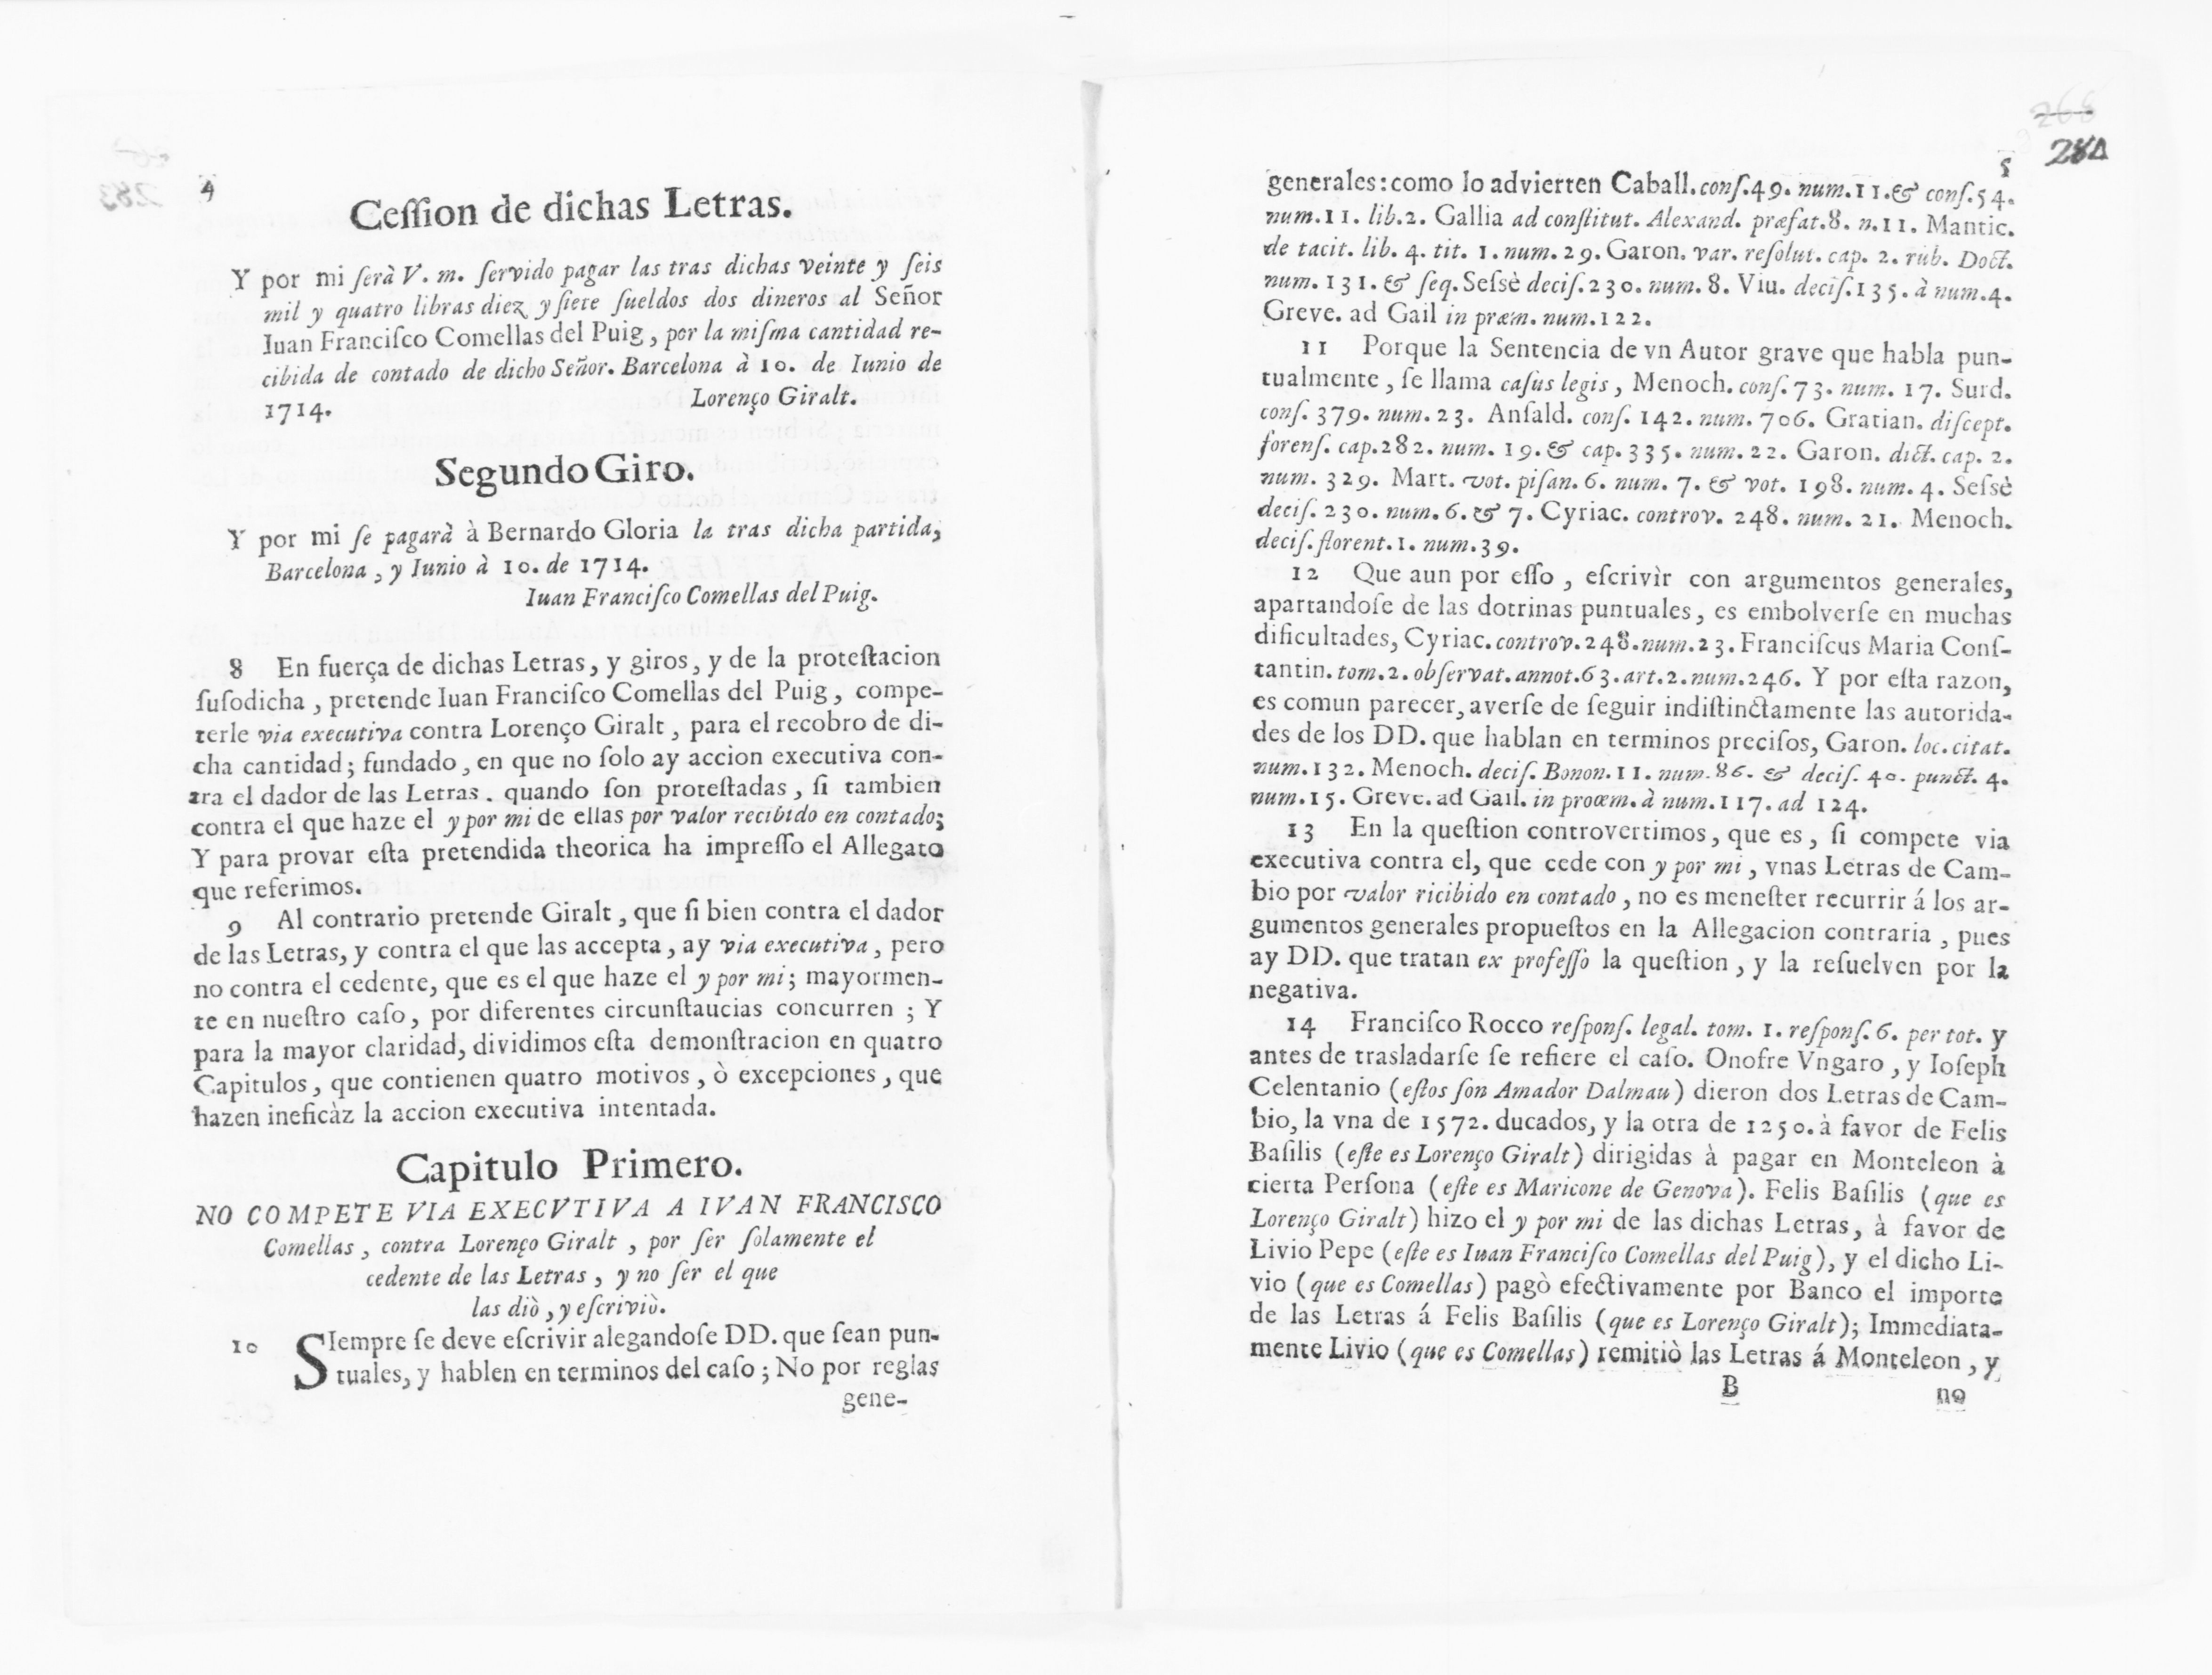 4
Ceſſion de dichas Letras.
Y por mi ſerà V. m. ſervido pagar las tras dichas veinte y ſeis
mil y quatro libras diez y ſiete ſueldos dos dineros al Señor
Iuan Franciſco Comellas del Puig, por la miſma cantidad re-
cibida de contado de dicho Señor. Barcelona à 10. de Iunio de
1714. Lorenço Giralt.
Segundo Giro.
Y por mi ſe pagarà à Bernardo Gloria la tras dicha partida,
Barcelona, y Iunio à 10. de 1714.
Iuan Franciſco Comellas del Puig.
8 En fuerça de dichas Letras, y giros, y de la proteſtacion
ſuſodicha, pretende Iuan Franciſco Comellas del Puig, compe-
terle via executiva contra Lorenço Giralt, para el recobro de di-
cha cantidad; fundado, en que no ſolo ay accion executiva con-
tra el dador de las Letras. quando ſon proteſtadas, ſi tambien
contra el que haze el y por mi de ellas por valor recibido en contado;
Y para provar eſta pretendida theorica ha impreſſo el Allegato
que referimos.
9 Al contrario pretende Giralt, que ſi bien contra el dador
de las Letras, y contra el que las accepta, ay via executiva, pero
no contra el cedente, que es el que haze el y por mi; mayormen-
te en nueſtro caſo, por diferentes circunſtaucias concurren; Y
para la mayor claridad, dividimos eſta demonſtracion en quatro
Capitulos, que contienen quatro motivos, ò excepciones, que
hazen ineficàz la accion executiva intentada.
Capitulo Primero.
NO COMPETE VIA EXECVTIVA A IVAN FRANCISCO
Comellas, contra Lorenço Giralt, por ſer ſolamente el
cedente de las Letras, y no ſer el que
las diò, y eſcriviò.
10 SIempre ſe deve eſcrivir alegandoſe DD. que ſean pun-
tuales, y hablen en terminos del caſo; No por reglas
gene-
284
5
generales: como lo advierten Caball. conſ. 49. num. 11. & conſ. 54.
num. 11. lib. 2. Gallia ad conſtitut. Alexand. præfat. 8. n. 11. Mantic.
de tacit. lib. 4. tit. 1. num. 29. Garon. var. reſolut. cap. 2. rub. Doct.
num. 131. & ſeq. Seſsè deciſ. 230. num. 8. Viu. deciſ. 135. à num. 4.
Greve. ad Gail in præm. num. 122.
11 Porque la Sentencia de vn Autor grave que habla pun-
tualmente, ſe llama caſus legis, Menoch. conſ. 73. num. 17. Surd.
conſ. 379. num. 23. Anſald. conſ. 142. num. 706. Gratian. diſcept.
forenſ. cap. 282. num. 19. & cap. 335. num. 22. Garon. dict. cap. 2.
num. 329. Mart. vot. piſan. 6. num. 7. & vot. 198. num. 4. Seſsè
deciſ. 230. num. 6. & 7. Cyriac. controv. 248. num. 21. Menoch.
deciſ. florent. 1. num. 39.
12 Que aun por eſſo, eſcrivìr con argumentos generales,
apartandoſe de las dotrinas puntuales, es embolverſe en muchas
dificultades, Cyriac. controv. 248. num. 23. Franciſcus Maria Conſ-
tantin. tom. 2. obſervat. annot. 63. art. 2. num. 246. Y por eſta razon,
es comun parecer, averſe de ſeguir indiſtinctamente las autorida-
des de los DD. que hablan en terminos preciſos, Garon. loc. citat.
num. 132. Menoch. deciſ. Bonon. 11. num. 86. & deciſ. 40. punct. 4.
num. 15. Greve. ad Gail. in proœm. à num. 117. ad 124.
13 En la queſtion controvertimos, que es, ſi compete via
executiva contra el, que cede con y por mi, vnas Letras de Cam-
bio por valor ricibido en contado, no es meneſter recurrir á los ar-
gumentos generales propueſtos en la Allegacion contraria, pues
ay DD. que tratan ex profeſſo la queſtion, y la reſuelven por la
negativa.
14 Franciſco Rocco reſponſ. legal. tom. 1. reſponſ. 6. per tot. y
antes de trasladarſe ſe refiere el caſo. Onofre Vngaro, y Ioſeph
Celentanio (eſtos ſon Amador Dalmau) dieron dos Letras de Cam-
bio, la vna de 1572. ducados, y la otra de 1250. à favor de Felis
Baſilis (eſte es Lorenço Giralt) dirigidas à pagar en Monteleon à
cierta Perſona (eſte es Maricone de Genova). Felis Baſilis (que es
Lorenço Giralt) hizo el y por mi de las dichas Letras, à favor de
Livio Pepe (eſte es Iuan Franciſco Comellas del Puig), y el dicho Li-
vio (que es Comellas) pagò efectivamente por Banco el importe
de las Letras á Felis Baſilis (que es Lorenço Giralt); Immediata-
mente Livio (que es Comellas) remitiò las Letras á Monteleon, y
B no